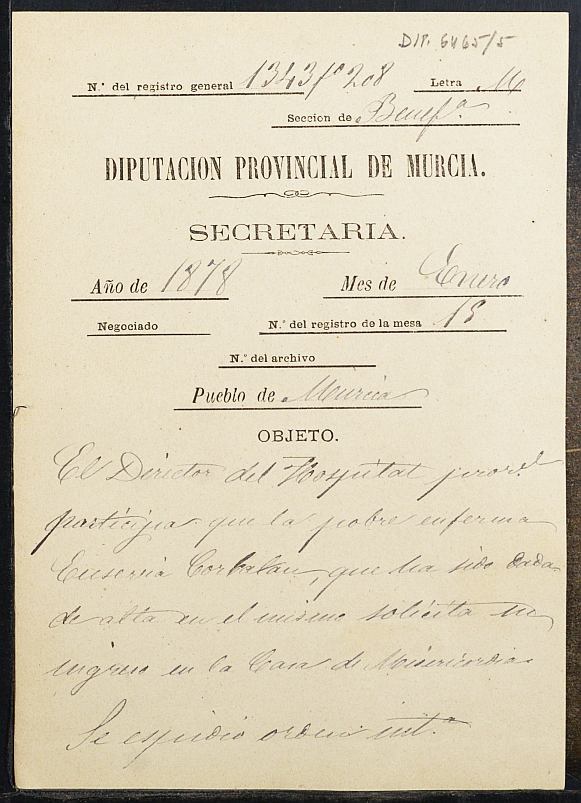 DIP. 6465/5
N.º del registro general 1343 fº 208 Letra M
Seccion de Benefª
DIPUTACION PROVINCIAL DE MURCIA.
SECRETARIA.
Año de 1878 Mes de Enero
Negociado N.º del registro de la mesa 18
N.º del archivo
Pueblo de Murcia
OBJETO.
El Director del Hospital
participa que la pobre enferma
Corbalan, que ha sido dada
de alta en el mismo solicita su
ingreso en la Casa de Misericordia
Se espidio orden